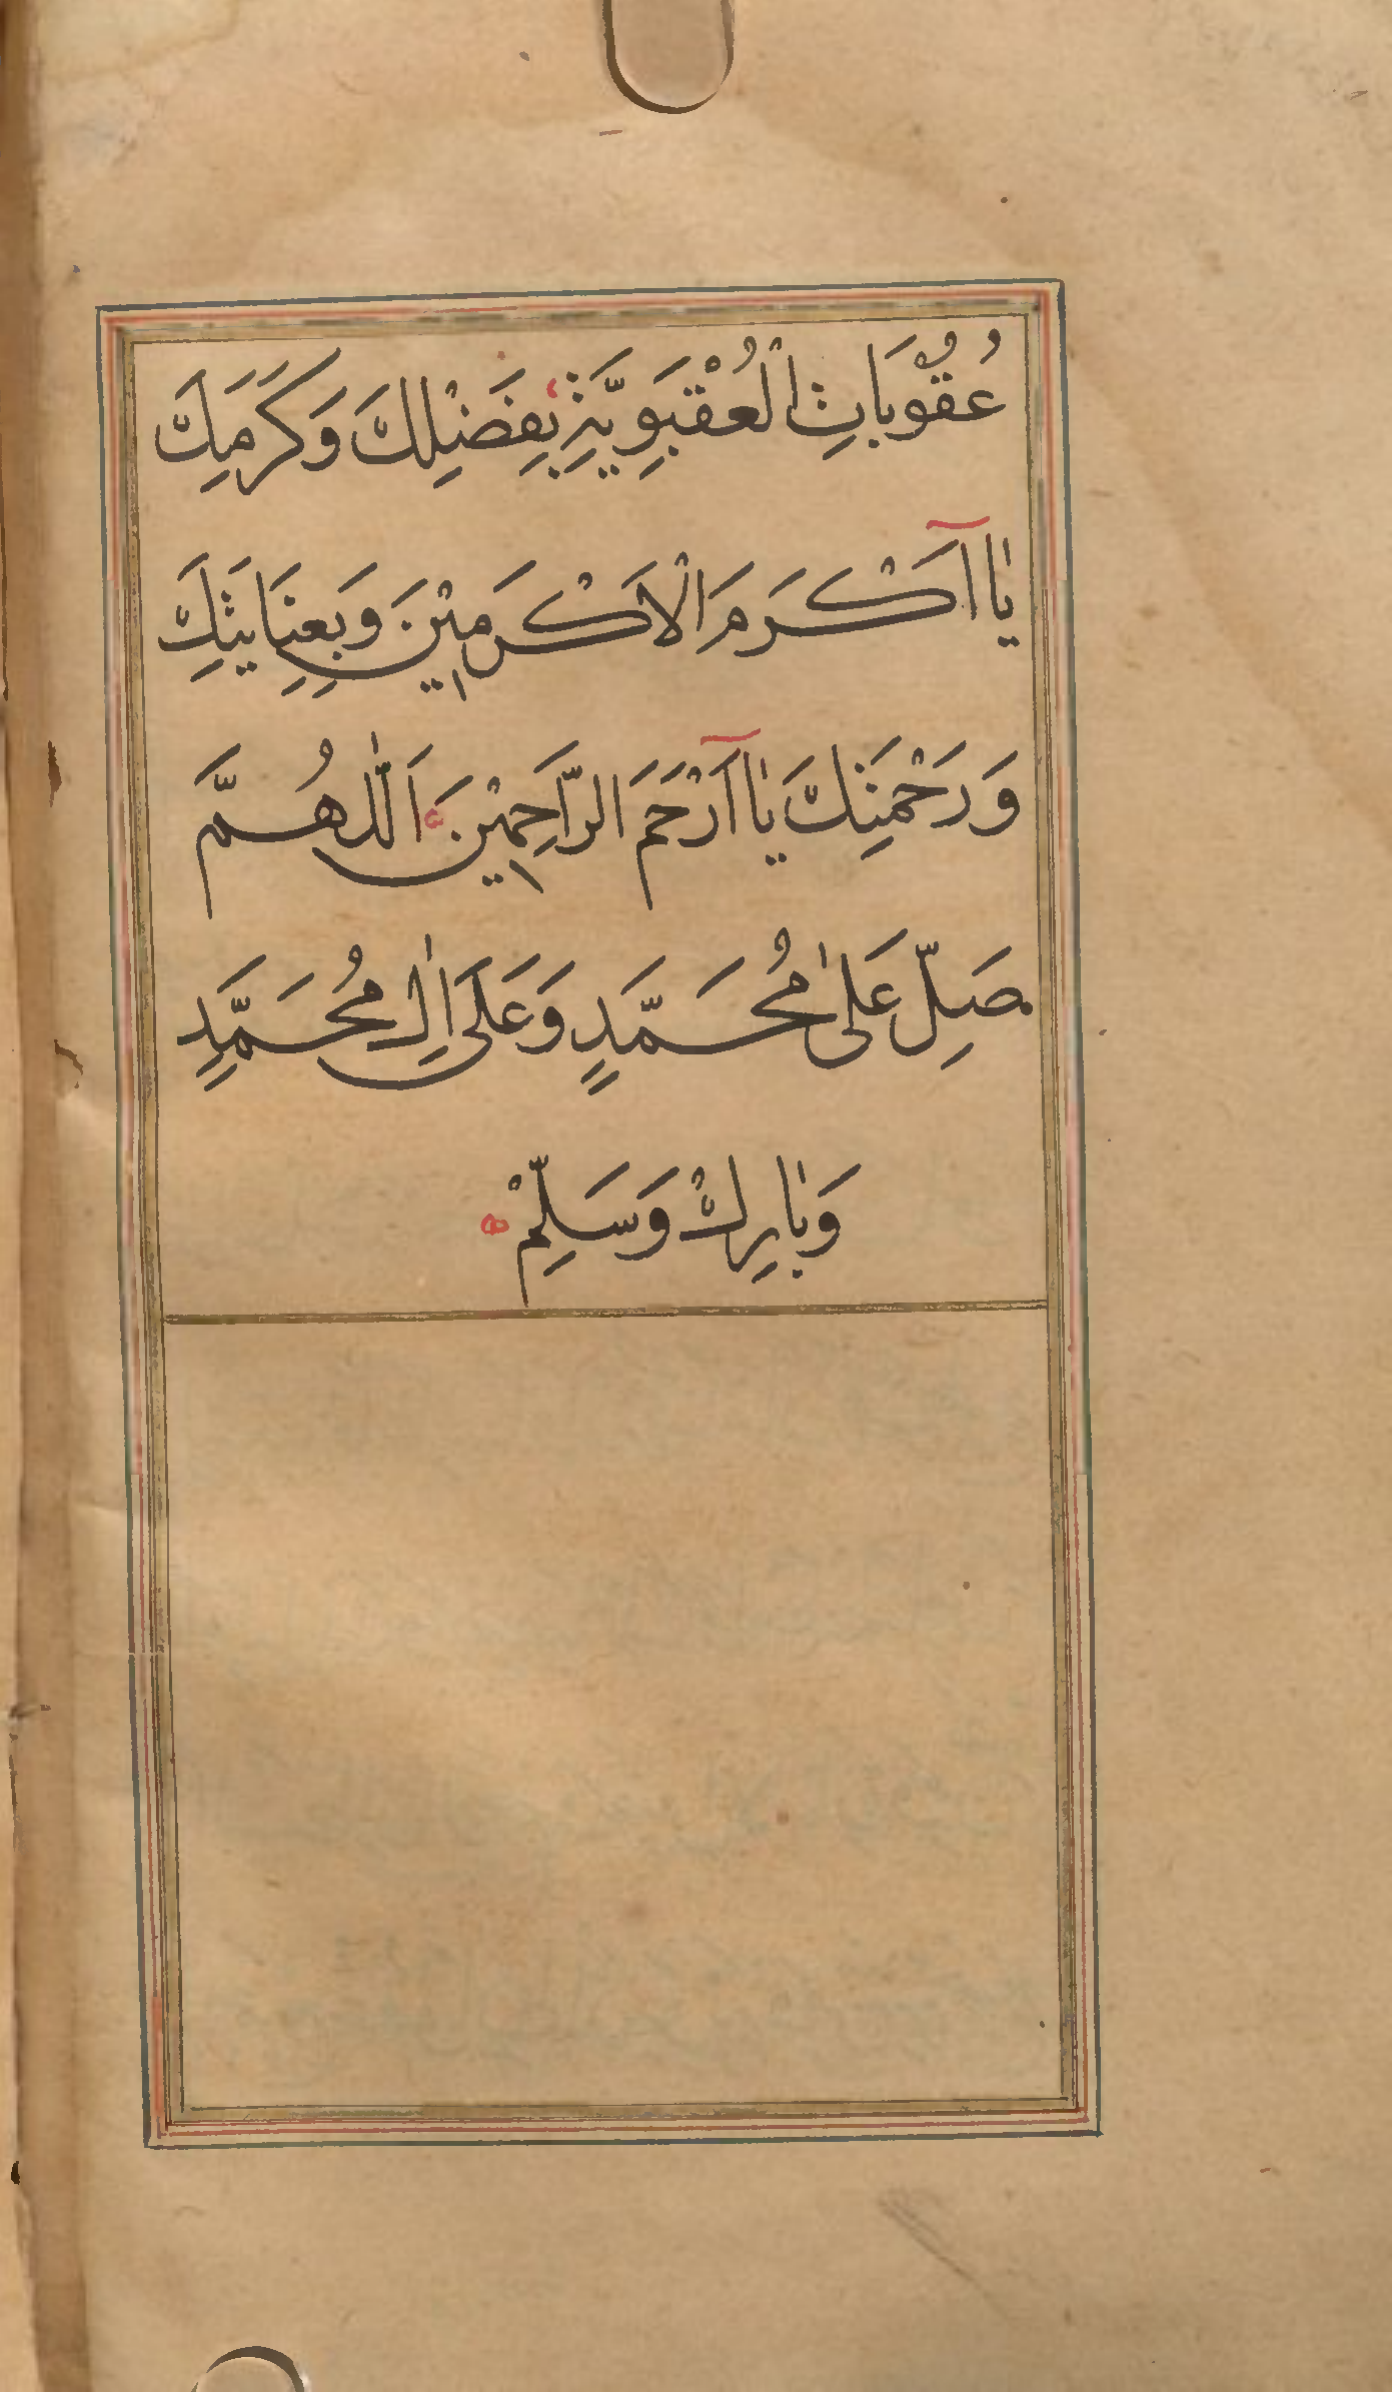 عُقُوْبَاتِ الْعُقْبَوِيَّةِ بِفَضْلِكَ وَكَرَمِكَ
يَا آكْرَمَ الْاَكْرَمِيْنَ وَبِعِنَايَتِكَ
وَرَحْمَتِكَ يَا آرْحَمَ الرَّاحِمِيْنَ اَللّٰهُمَّ
صَلِّ عَلٰى مُحَمَّدٍ وَعَلَى اٰلِ مُحَمَّدٍ
وَبَارِكْ وَسَلِّمْ